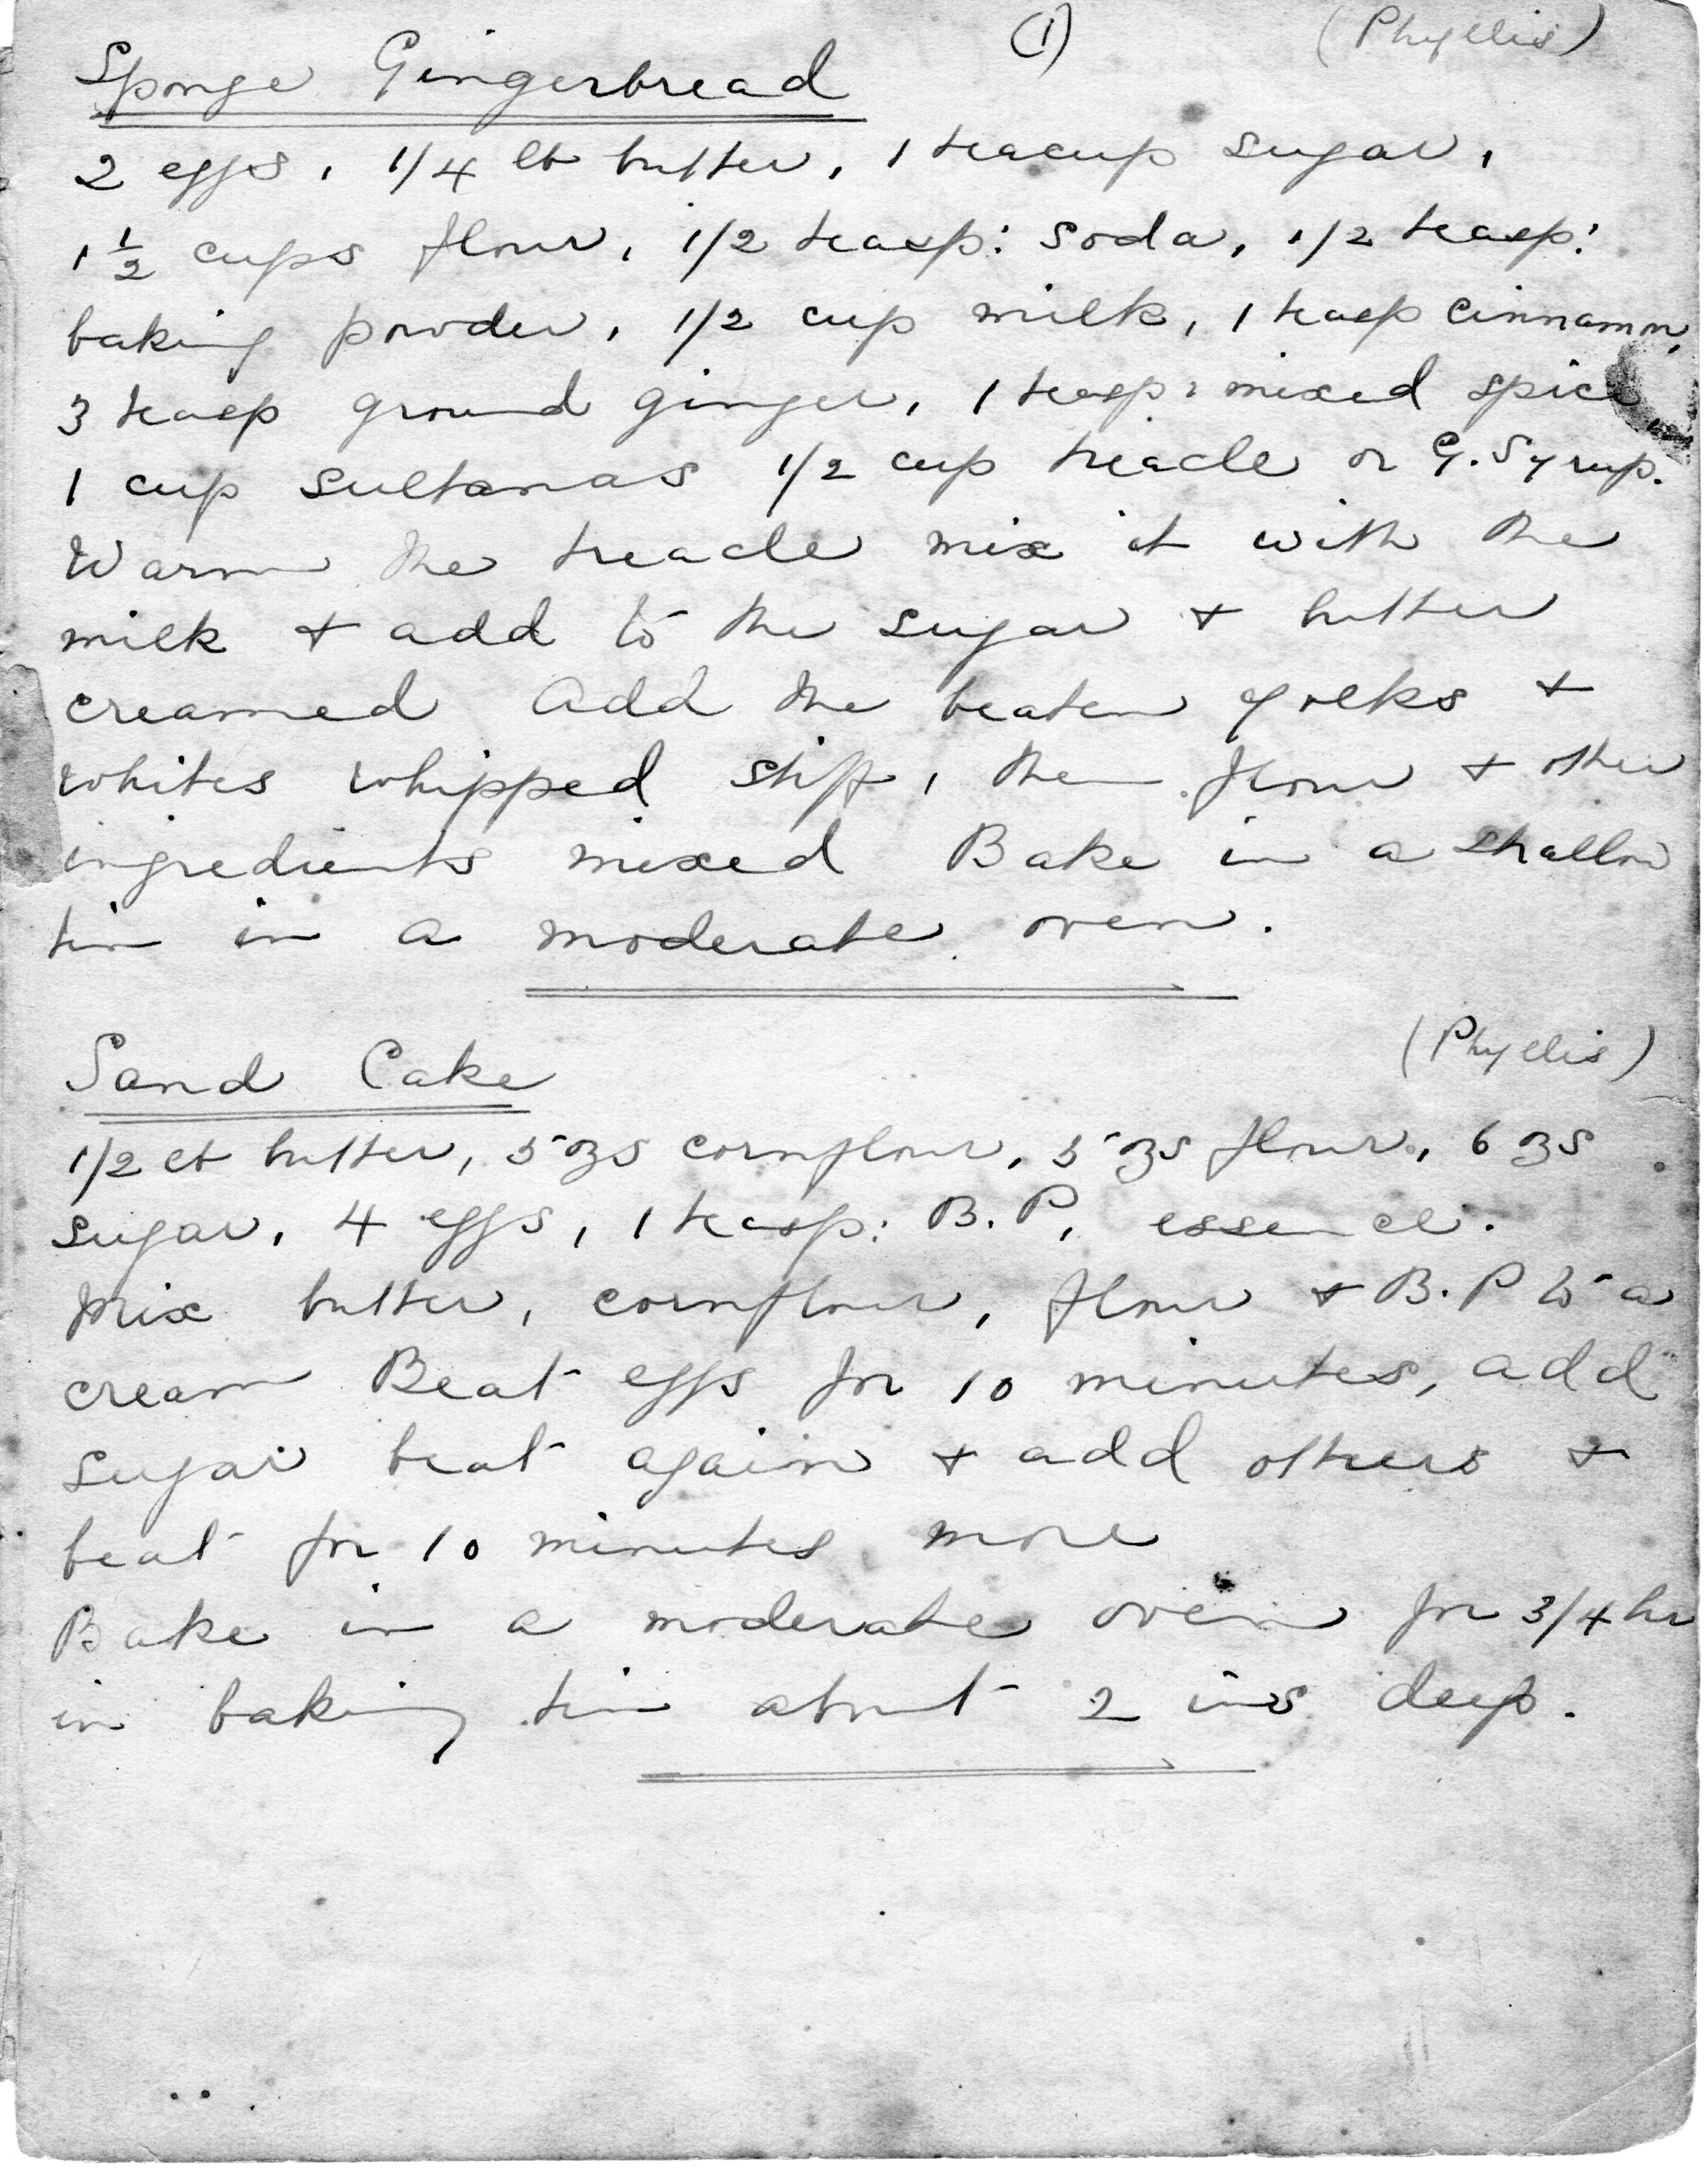 (1) (Phyllis)
Sponge Gingerbread
2 eggs, 1/4 lb butter, 1 teacup sugar,
1 1/2 cups flour, 1/2 teasp: soda, 1/2 teasp:
baking powder, 1/2 cup milk, 1 teasp cinnamon,
3 teasp ground ginger, 1 teasp: mixed spice
1 cup sultanas 1/2 cup treacle or G. Syrup.
Warm the treacle mix it with the
milk + add to the sugar + butter
creamed Add the beaten yolks +
whites whipped stiff, then flour + other
ingredients mixed Bake in a shallow
tin in a moderate oven.
(Phyllis)
Sand Cake
1/2 lb butter, 5 ozs cornflour, 5 ozs flour, 6 ozs
sugar, 4 eggs, 1 teasp: B.P, essence.
Mix butter, cornflour, flour + B.P to a
cream Beat eggs for 10 minutes, add
sugar beat again + add others +
beat for 10 minutes more
Bake in a moderate oven for 3/4 hr
in baking tin about 2 ins deep.